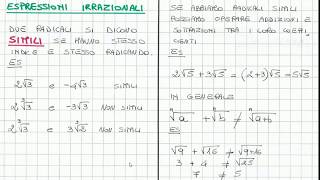 ESPRESSIONI IRRAZIONALI
DUE RADICALI SI DICONO
SIMILI SE HANNO STESSO
INDICE E STESSO RADICANDO.
ES
2√3 e -4√3 SIMILI
2∛3 e -√3 NON SIMILI
2∛3 e 3∛2 NON SIMILI
SE ABBIAMO RADICALI SIMILI
POSSIAMO OPERARE ADDIZIONI E
SOTTRAZIONI TRA I LORO COEFFI
CIENTI
2√5 + 3√5 = (2+3)√5 = 5√5
IN GENERALE
ⁿ√a + ⁿ√b ≠ ⁿ√a+b
ES
√9 + √16 ≠ √9+16
3 + 4 ≠ √25
7 ≠ 5